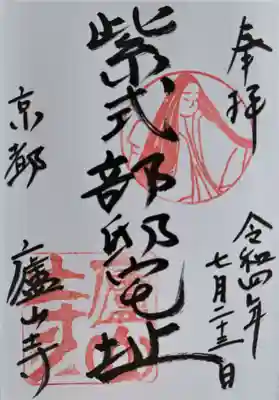 奉拝
令和四年
七月二十三日
紫式部邸宅址
京都
廬山寺